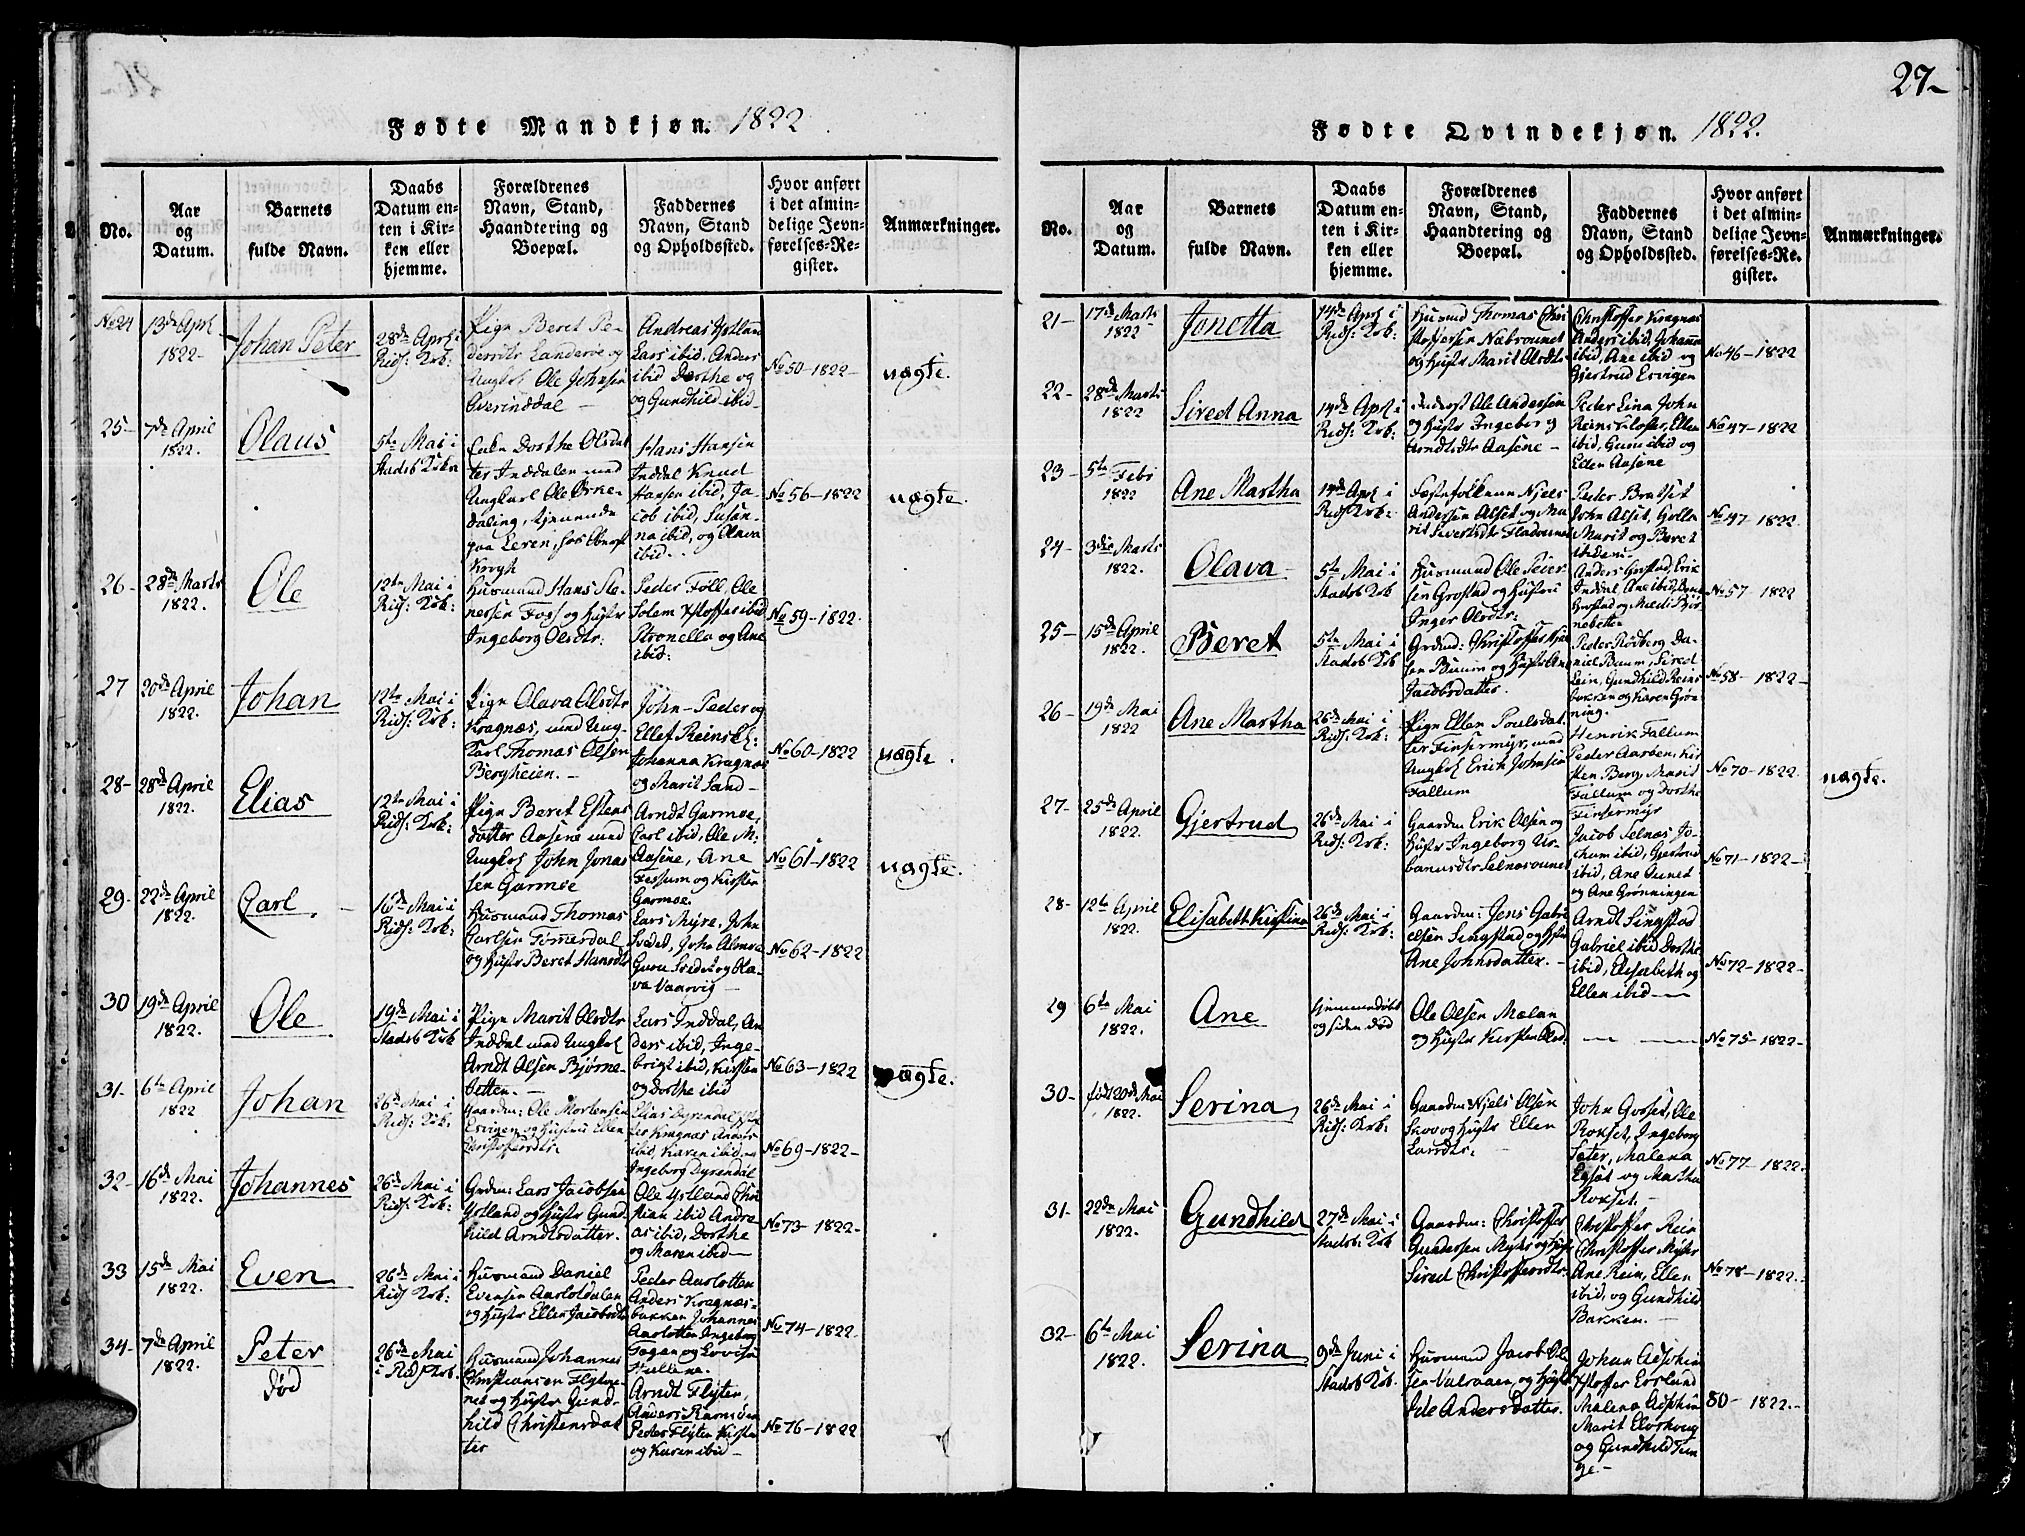 27-
Fødte Mandkjøn. 1822
No.
Aar
og
Datum.
Barnets
fulde Navn.
Daabs
Datum en-
ten i Kir-
ken eller
hjemme.
Forældrenes
Navn, Stand,
Haandtering og
Boepæl.
Faddernes
Navn, Stand
og Opholdssted.
Hvor anført
i det almin-
delige Jevn-
førelses-Re-
gister.
Anmærkninger.
No 24
13de Apri
1822-
Johan Peter
28de April i
Rids: Krk:
Pign Beret Pe-
dersdtr Landerøe og
Ungkol Ole Johnsen
Overinddal -
Andreas Ystland
Lars ibid, Anders
ibid Dorthe og
og Gundhild ibid-
No 50-1822-
uægte.
25-
7de April
1822.
Olaus
5te Mai i
Stadsb Krk
Enken Dorthe Olsdat
ter Inddalen med
Ungkarl Ole Orke-
daling, tjenende
paa Leren, hos Oberst
Krogh
Hans Hansen
Inddal Knud
Hansen ibid, Ja-
cob ibid, Susan-
na ibid, og Olava
ibid..
No 56-1822
uægte.
26-
28de Marts
1822.
Ole
12te Mai i
Rids: Krk:
Husmand Hans Ste-
nersen Fogs og Hustr
Ingeborg Olsdtr:
Peder Foll, Ole
Solem Kstoffer ibid
Stronella og Ane
ibid:
No 59-1822.
27
20de April
1822.
Johan
12te Mai i
Rids: Krk:
Pign Olava Olsdtr
Kragnæs, med Ung-
Karl Thomas Olsen
Bergheien.-
John- Peder og
Ellef Reinskl:
Johanna Kragnæs
og Marit Sand-
No 60-1822
uægte.
28-
28de April
1822.
Elias
12te Mai i
Rids: Krk:
Pign Beret Estens
datter Aasene med
Ungkol John Jonas
sen Garmøe
Arndt Garmoe,
Carl ibid, Ole M:
Aasine, Ane
Fessum og Kirsten
Garmoe.
No 61-1822
uægte.
29-
22de April
1822.
Carl.
16de Mai i
Rids: Krk:
Husmand Thomas
Carlsen Tømmerdal
og Hustr Beret Hansdtr
Lars Myre, John
Svedet, John Almoe
Guru Svedet og Ola-
va Vaarvig-
No 62-1822
30
19de April
1822.
Ole
19de Mai i
Stadsb Krk
Pign Marit Olsdtr
Inddal med Ungkol
Arndt Olsen Bjørne-
betten.-
Lars Inddal, An
ders ibid, Inge-
brigt ibid, Kirsten
og Dorthe ibid
No 63-1822
uægte.
31-
6te April
1822
Johan
26de Mai i
Rids: Krk:
Gaardm: Ole Mortensen
Esvigen og Hustru Ellen
Christoffersdtr:
Elias Dyrendal
Kragnæs Anders
ibid, Karen ibid, og
Ingeborg Dyrendal
No 69-1822-
32-
16de Mai
1822.
Johannes
26de Mai i
Rids: Krk:
Grdm: Lars Jacobsen
Ystland og Hustr Gund
hild Arndtsdatter.-
Ole Ystland Chri
stian ibid Andre
as ibid, Dorthe
og Maren ibid-
No 73-1822-
33
15de Mai
1822.
Even
26de Mai i
Rids Krk:
Husmand Daniel
Evensen Aarlotdalen
og Hustr Ellen Jacobsdtr
Peder Aarlotten
Anders Kragnæs-
bakken Johannes
Aarlotten Ingeborg
og Lovise
No 74-1822.
34-
7de April
1822.
Peter
død
26de Mai
i Rids Krk.
Husmand Johannes
Christiansen Flyten
nes og Hustr Gund-
hild Christensdat
ter
Arndt Flyten,
Anders Ramsøen
Peder Flyten Kirsten
og Karen ibid-
No 76-1822
Fødte Qvindekjøn. 1822.
No.
Aar
og
Datum.
Barnets
fulde Navn.
Daabs
Datum en-
ten i Kir-
ken eller
hjemme.
Forældrenes
Navn, Stand,
Haandtering og
Boepæl.
Faddernes
Navn, Stand
og Opholdssted.
Hvor anført
i det almin-
delige Jevn-
førelses-Re-
gister.
Anmærkninger.
21-
17de Marts
1822
Jonetta
14de April i
Rids: Krk:
Husmd Thomas Chri
stophersen Næbrounet
og Hustr Marit Olsdtr
Christoffer Kragnæs
Anders ibid, Johanna
ibid, Ane ibid og
Gjertrud Esvigen
No 46-1822
22-
28de Marts
1822
Sired Anna
14de April i
Rids: Krk:
Inderst Ole Andersen
og Hustr Ingeborg
Arndtsdtr Aasene-
Peder Lina John
Reinskloster, Ellen
ibid, Guru ibid og
Ellen Aasene
No 47-1822
23-
5te Febr
1822
Ane Martha
14de April i
Rids Krk:
Festefolkene Njels
Andersen Alset og Ma
rit Sivertsdtr Fladaunet
Peder Bratset
John Alset, Hollo
Marit og Beret
ibidem.
No 47 1822
24-
3die Marts
1822.
Olava
5te Mai i
Stadsb Krk
Husmand Ole Peter
sen Grøstad og Hustru
Inger Olsdtr:
Anders Grøstad, Erik
Inddal, Ane ibid,
Grøstad og Bjør
nebetten
No 57-1822
25-
15de April
1822.
Beret
5te Mai i
Stadsb Krk
Grdmd: Christoffer
sen Buum og Hustr Ane
Jacobsdatter.
Peder Rødberg Da-
niel Buum, Sired
Lein, Gundhild Reins
bakken og Karen Grøn
ning.
No 58-1822-
26-
19de Mai
1822
Ane Martha
26de Mai i
Rids: Krk:
Pign Ellen Poulsdat
ter Finsermyr, med
Ungkol Erik Johnsen
Fallum
Henrik Fallum
Peder Aarben, Kir
sten Berg, Marit
Fallum og Dorthe
Finsermyr
No 70-1822.
uægte.
27-
25de April
1822.
Gjertrud
26de Mai i
Rids: Krk:
Gaardm: Erik Olsen og
Hustr Ingeborg Ur-
banusdtr Selnæsaunet
Jacob Selnæs Jo-
chum ibid, Gjertrud
ibid, Ane Aunet
og Ane Grønningen
No 71-1822-
28-
12te April
1822.
Elisabeth Kirstina
26de Mai i
Rids: Krk:
Gaardm: Jens Gabri
elsen Singstad og Hustr
Ane Johnsdatter.-
Arndt Singstad
Gabriel ibid Dorthe
ibid, Elisabeth og
Ellen ibid-
No 72-1822-
29
6te Mai
1822.
Ane
hjemmedøbt
og siden død
Ole Olsen Mælan
og Hustr Kirsten Olsd.
No 75-1822-
30-
fød 20de Mai
1822.
Serina
26de Mai i
Rids: Krk:
Gaardm: Njels Olsen
Skov og Hustr Ellen
Larsdtr:
John Gorset, Ole
Rokset, Ingeborg
Sæter, Malena
Egset og Martha
Rokset.-
No 77-1822.
31-
22de Mai
1822.
Gundhild
27de Mai i
Stadsb: Krk
Gaardm: Christoffer
Gundersen Myhr og Hustr
Sired Christoffersdtr:
Christoffer Rein
Christoffer Myhr
Ane Rein, Ellen
ibid, og Gundhild
Bakken.-
No 78-1822.
32-
6te Mai
1822.
Serina
9de Juni i
Stadsb Krk.
Husmand Jacob Ol-
sen Valvaaen, og Hustr
Ide Andersdatter.
Johan Adolphin
Kstoffer Lorlund
Malena Adolphin
Marit Elvskoug
og Gundhild Tun
ge.-
80- 1822.-